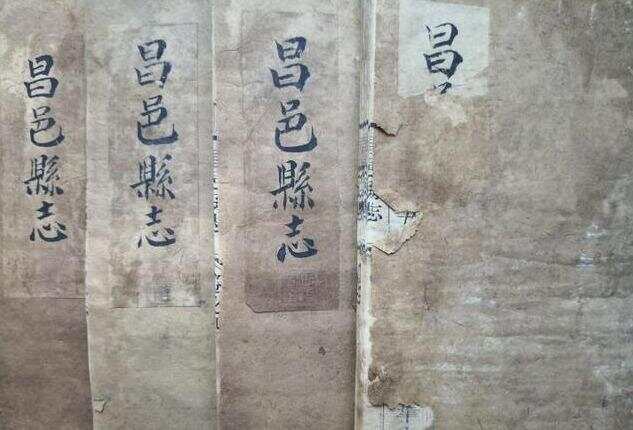 昌邑縣志
昌邑縣志
昌邑縣志
昌
志